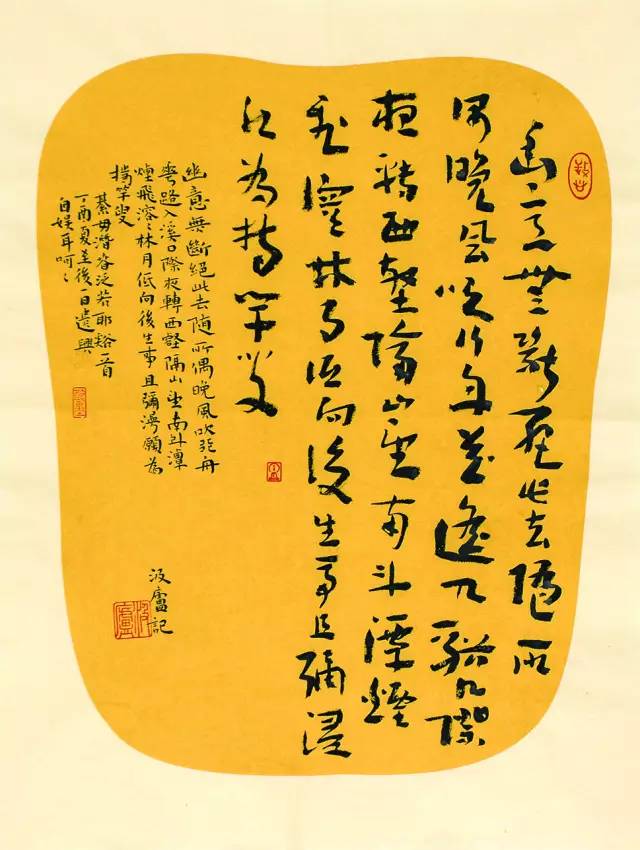 幽意無斷絕此去隨所
偶晚風吹行舟花路入谿口際
夜轉西壑隔山望南斗潭煙
飛溶〻林月低向後生事且彌漫
願為持竿叟
幽意無斷絕此去隨所偶晚風吹行舟
花路入溪口際夜轉西壑隔山望南斗潭
煙飛溶〻林月低向後生事且彌漫願為
持竿叟
綦毋潛春泛若耶谿一首
丁酉夏至後日遣興
自娛耳呵〻
汲廬記
汲廬